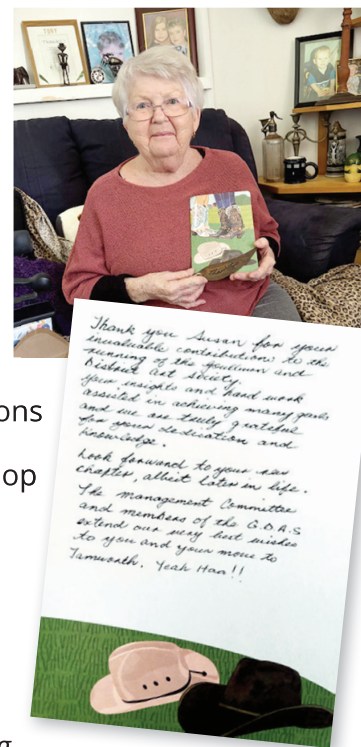 ons
op
Thank you Susan for your
invaluable contributions to the
running of the Goulburn and
District Art Society.
Your insights and hard work
assisted in achieving many goals
and we are truly grateful
for your dedication and
knowledge.
Look forward to your new
chapter, albeit later in life.
The management Committee
and members of the G.D.A.S
extend our very best wishes
to you and your move to
Tamworth. Yeah Haa!!